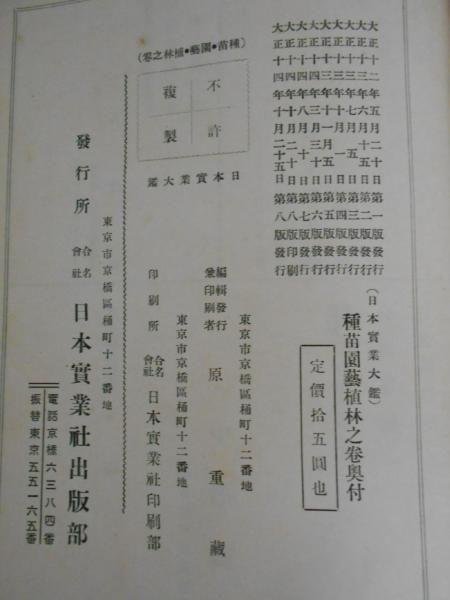 大正十二年五月二十日第一版發行
大正十三年六月一日第二版發行
大正十三年十月五日第三版發行
大正十三年十一月一日第四版發行
大正十四年一月十五日第五版發行
大正十四年三月三十日第六版發行
大正十四年八月十日第七版發行
大正十四年十月二十日第八版印刷
大正十四年十月二十五日第八版發行
(日本實業大鑑)
種苗園藝植林之卷奥付
定價拾五圓也
(種苗・園藝・植林之卷)
不許
複製
日本實業大鑑
東京市京橋區桶町十二番地
編輯發行
兼印刷者
原重藏
東京市京橋區桶町十二番地
印刷所
合名
會社
日本實業社印刷部
東京市京橋區桶町十二番地
發行所
合名
會社
日本實業社出版部
電話京橋六三八四番
振替東京五五一六五番